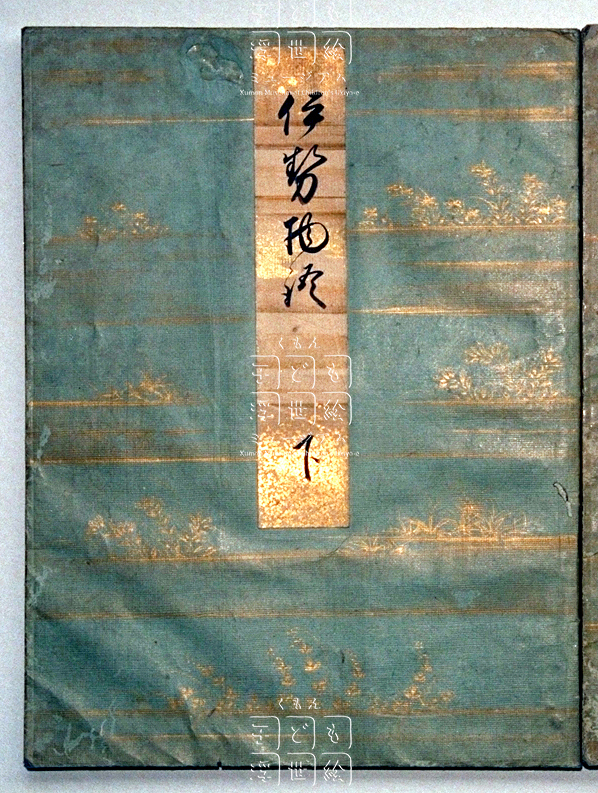 伊勢物語
下
浮世絵
Kumon Museum of Children's Ukiyo-e
くもん
子ども
浮世絵
Kumon Museum of Children's Ukiyo-e
くもん
子ども
浮世絵